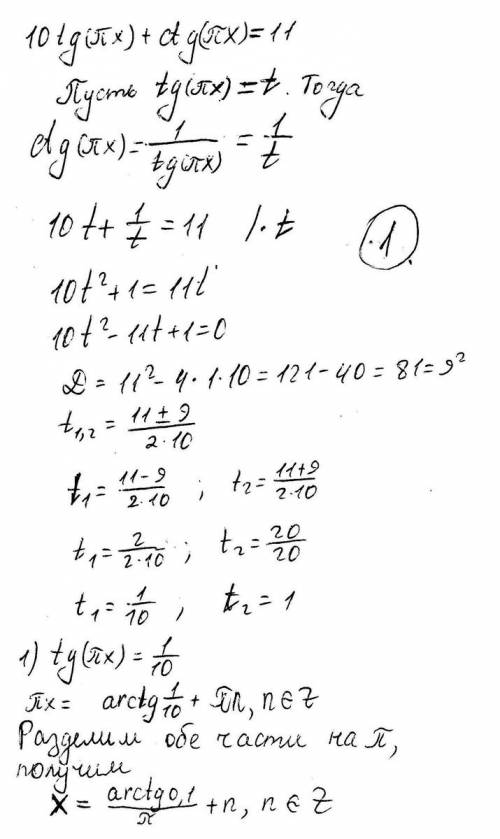 10 tg(πx) + ctg(πx) = 11
Пусть tg(πx) = t. Тогда
ctg(πx) = 1/tg(πx) = 1/t
10t + 1/t = 11 /· t
1
10t² + 1 = 11t
10t² - 11t + 1 = 0
D = 11² - 4·1·10 = 121 - 40 = 81 = 9²
t₁,₂ = (11 ± 9)/(2·10)
t₁ = (11 - 9)/(2·10) ; t₂ = (11 + 9)/(2·10)
t₁ = 2/(2·10) ; t₂ = 20/20
t₁ = 1/10 , t₂ = 1
1) tg(πx) = 1/10
πx = arctg 1/10 + πn, n ∈ Z
Разделим обе части на π,
получим
x = arctg 0,1/π + n, n ∈ Z